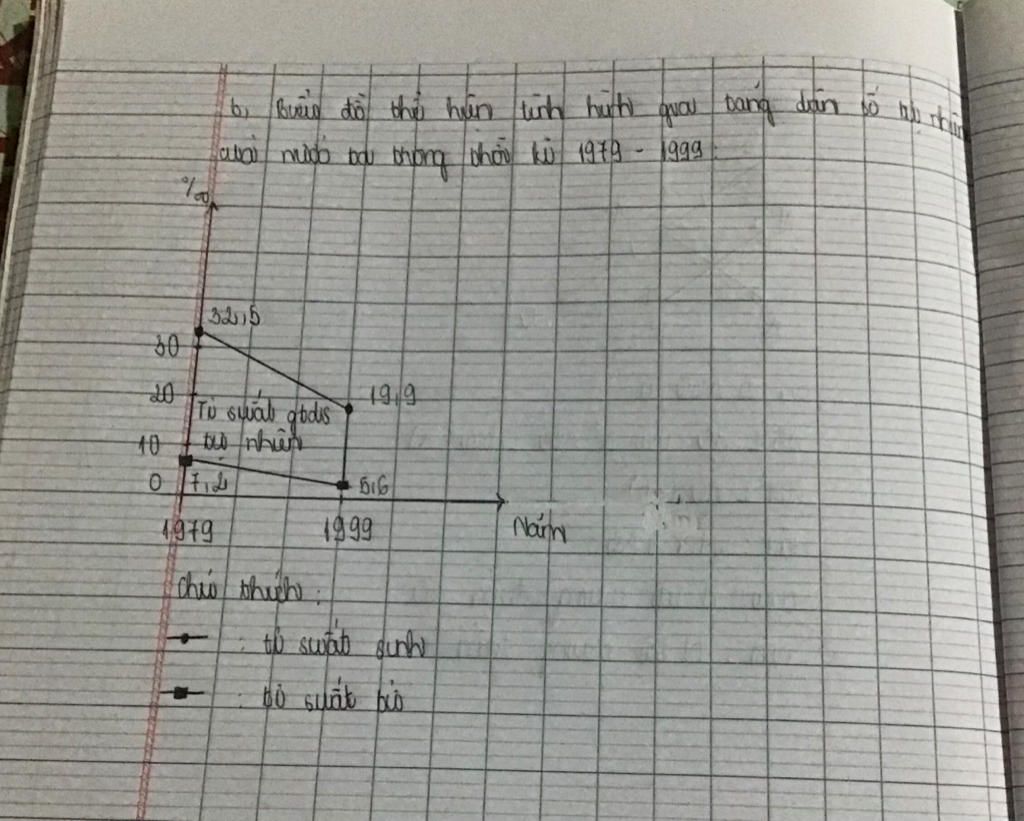 b, Biểu đồ thể hiện tình hình gia tăng dân số tự nhiên
của nước ta trong thời kì 1979 - 1999:
‰
32,5
30
19,9
20
Tỉ suất gtds
10
tự nhiên
0
7,2
5,6
1979
1999
Năm
Chú thích:
: tỉ suất sinh
: tỉ suất tử